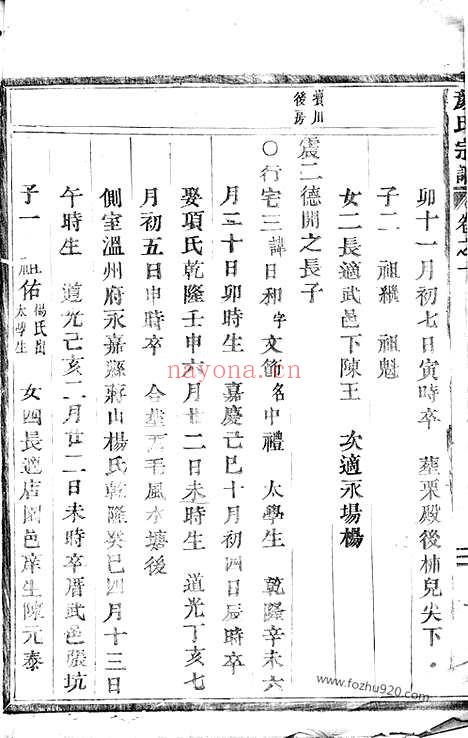 顏氏宗譜 卷之十
卯十一月初七日寅時卒 葬栗殿後柿兒尖下
子二 祖繩 祖魁
女二長適武邑下陳王 次適永場楊
震二德開之長子
後房
○行宅三諱日和字文節名中禮 太學生 乾隆辛未六
月三十日卯時生 嘉慶己巳十月初四日辰時卒
娶項氏乾隆壬申六月廿二日未時生 道光丁亥七
月初五日申時卒 合葬 風水壇後
側室溫州府永嘉縣蔣山楊氏乾隆癸巳四月十三日
午時生 道光己亥二月廿二日未時卒厝武邑 坑
子一 祖佑 楊氏出 太學生 女四長適店園邑庠生陳元泰
nayona.com
www.fozhu920.com